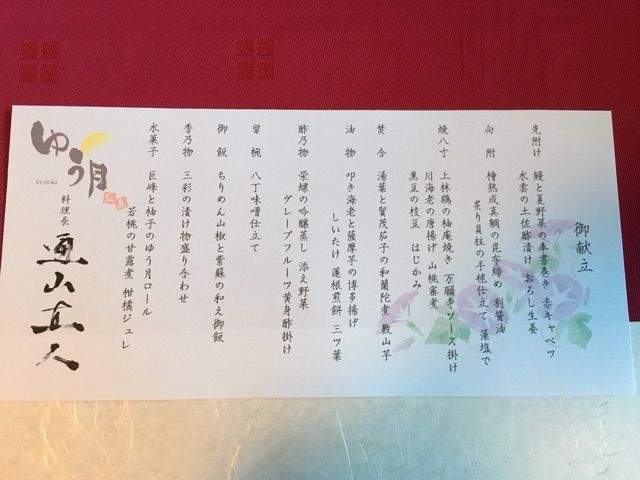 御献立
先附け 鰻と夏野菜の奉書巻き 赤キャベツ
水雲の土佐酢漬け おろし生姜
向附 檜熟成真鯛の昆布締め 割醤油
炙り貝柱の手毬仕立て 藻塩で
焼八寸 上林鶏の柚庵焼き 万願寺ソース掛け
川海老の唐揚げ 山桃蜜煮
黒豆の枝豆 はじかみ
焚合 湯葉と賀茂茄子の和蘭陀煮 敷山芋
油物 叩き海老と薩摩芋の博多揚げ
しいたけ 蓮根煎餅 三ツ葉
酢乃物 栄螺の吟醸蒸し 添え野菜
グレープフルーツ黄身酢掛け
留椀 八丁味噌仕立て
御飯 ちりめん山椒と紫蘇の和え御飯
香乃物 三彩の漬け物盛り合わせ
水菓子 巨峰と柚子のゆう月ロール
若桃の甘露煮 柑橘ジュレ
ゆう月
YUZUKI
料理長